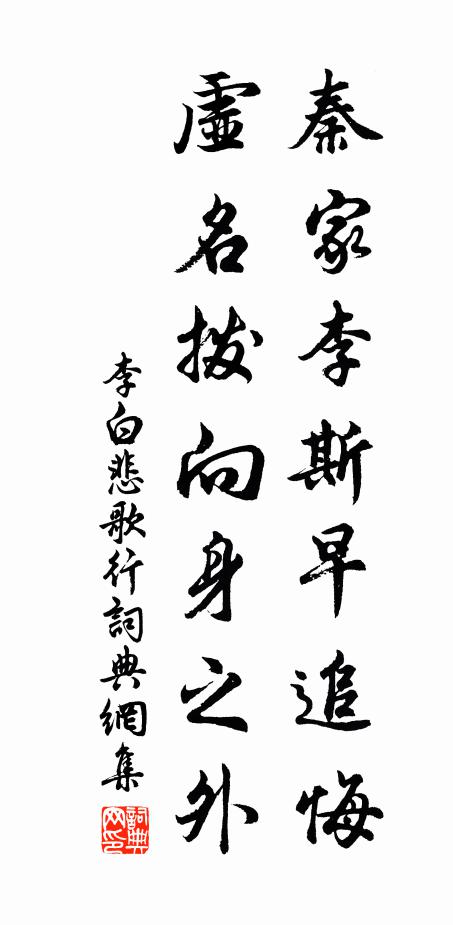 秦家李斯早追悔
虛名撥向身之外
李白悲歌行詞典網集
詞典網印